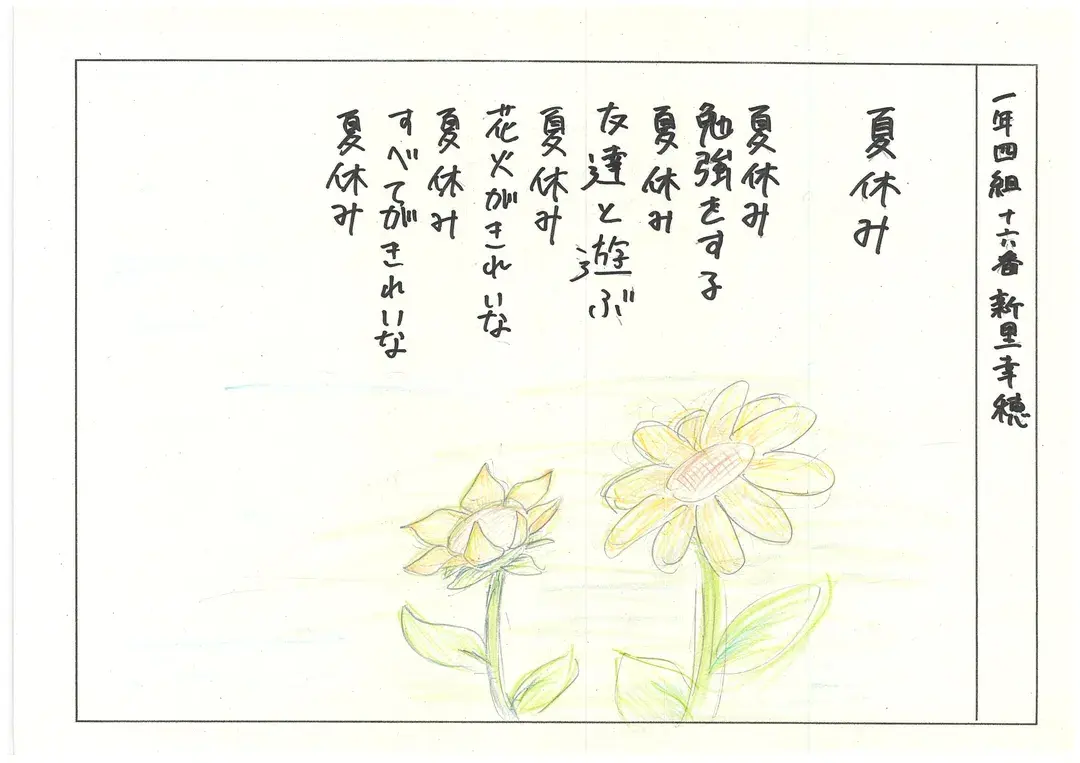 一年四組 十六番 新里幸穂
夏休み
夏休み
勉強をする
夏休み
友達と遊ぶ
夏休み
花火がきれいな
夏休み
すべてがきれいな
夏休み